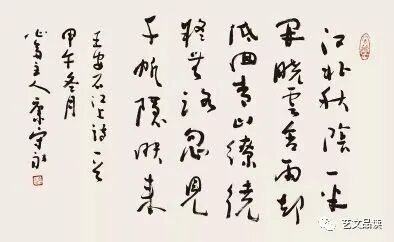 江北秋阴一半
开晓云含雨却
低回青山缭绕
疑无路忽见
千帆隐映来
王安石江上诗一首
甲午冬月
心斋主人康守永
艺文品读